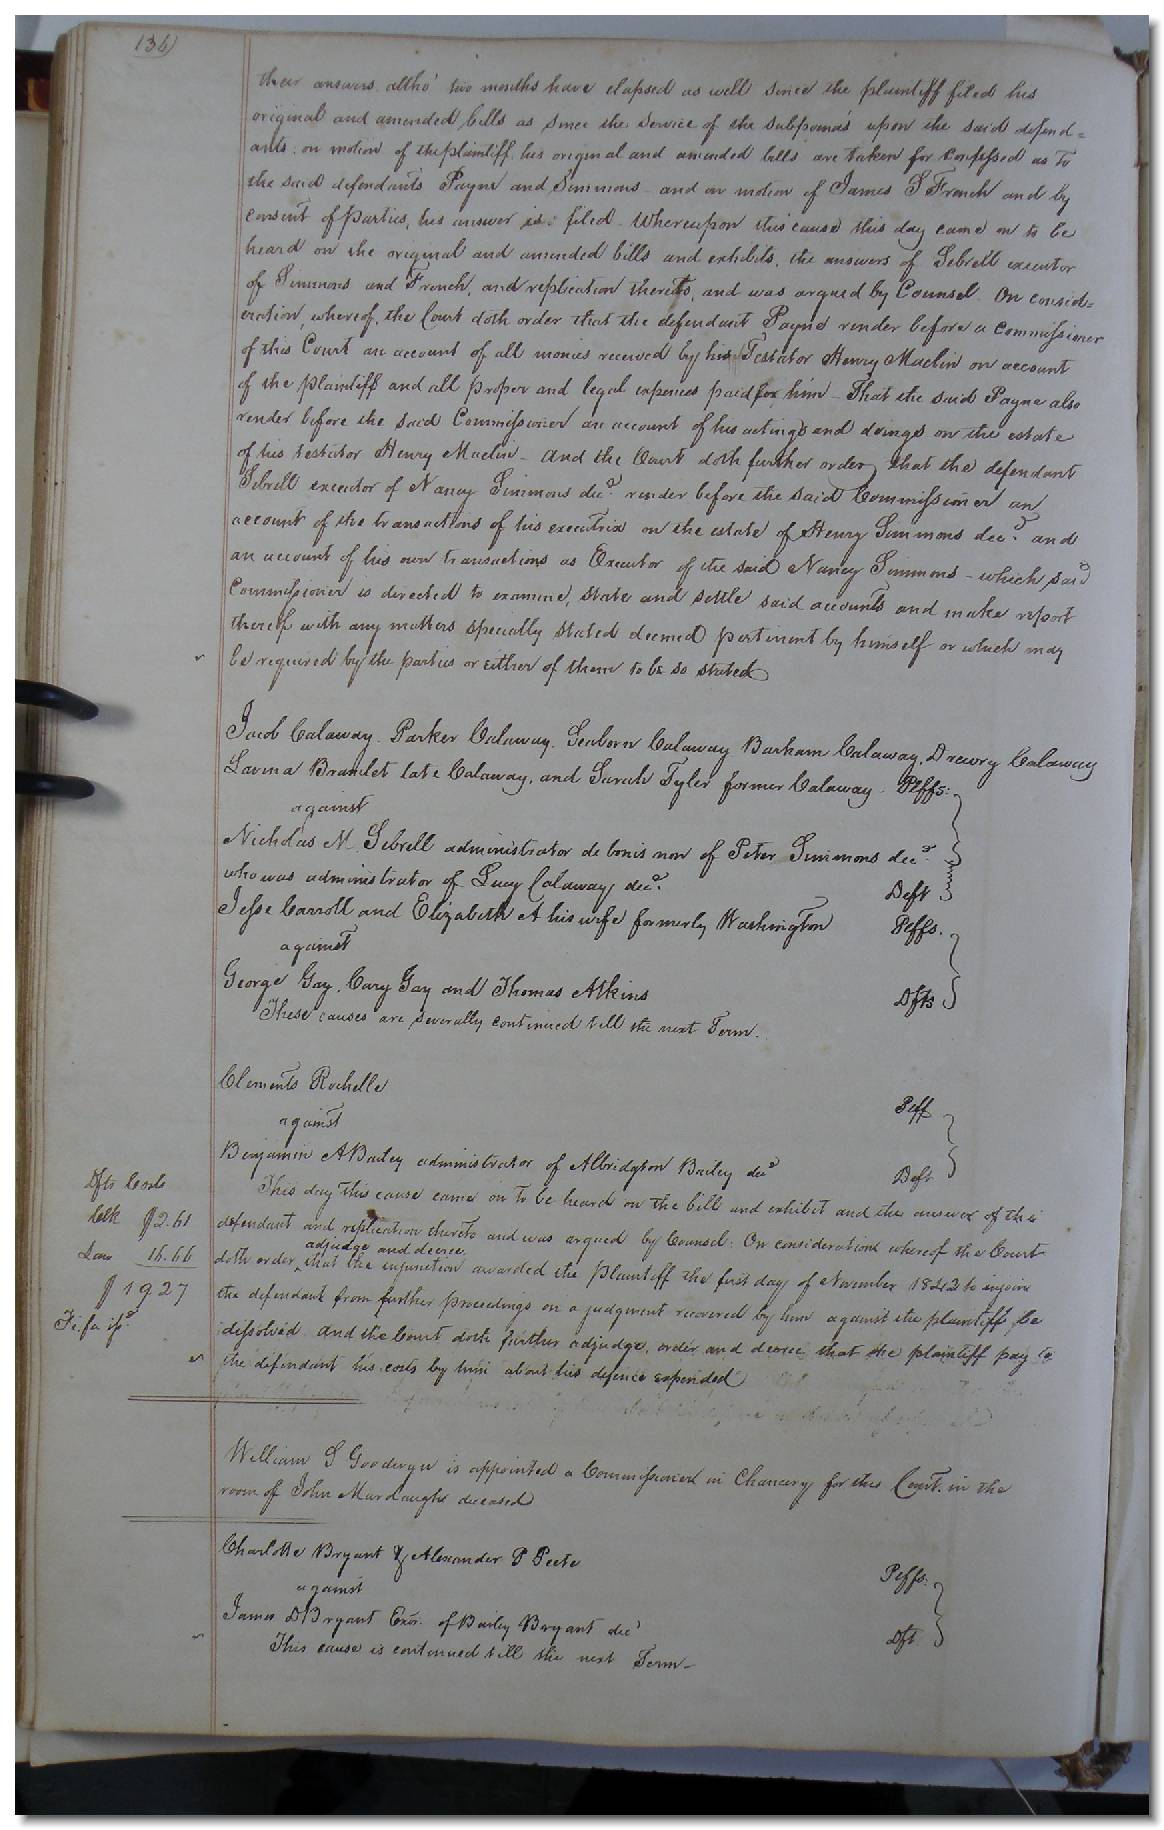 136
their answers altho' two months have elapsed as well since the plaintiff filed his
original and amended bills as since the service of the subpoena's upon the said defend=
ants. on motion of the plaintiff, his original and amended bills are taken for confessed as to
the said defendants Payne and Simmons - and on motion of James S French and by
consent of parties, his answer is filed. Whereupon this cause this day came on to be
heard on the original and amended bills and exhibits, the answers of Sebrell executor
of Simmons and French, and replication thereto, and was argued by Counsel. On consid=
eration, whereof, the Court doth order that the defendant Payne render before a commissioner
of this Court an account of all monies received by his Testator Henry Maclin on account
of the plaintiff and all proper and legal expences paid for him - That the said Payne also
render before the said Commissioner an account of his actings and doings on the estate
of his testator Henry Maclin - And the Court doth further order, that the defendant
Sebrell executor of Nancy Simmons decd. render before the said Commissioner an
account of the transactions of his executrix on the estate of Henry Simmons decd. and
an account of his own transactions as Executor of the said Nancy Simmons - which said
Commissioner is directed to examine, state and settle said accounts and make report
thereof with any matters specially stated deemed pertinent by himself or which may
be required by the parties or either of them to be so stated
Jacob Calaway. Parker Calaway. Seaborn Calaway Barham Calaway, Drewry Calaway
Lavina Bramlet late Calaway, and Sarah Tyler former Calaway. Plffs.
against
Nicholas M. Sebrell administrator de bonis non of Peter Simmons decd.
who was administrator of Lucy Calaway, decd. Deft
Jesse Carroll and Elizabeth A his wife formerly Washington Plffs.
against
George Gay, Cary Gay and Thomas Atkins Dfts
These causes are severally continued till the next Term.
Clements Rochelle Plff
against
Benjamin A Bailey administrator of Albridgton Bailey decd Deft
This day this cause came on to be heard on the bill and exhibit and the answer of the
defendant and replication thereto and was argued by Counsel: On consideration whereof the Court
adjudge and decree
doth order, that the injunction awarded the Plaintiff the first day of November 1842 to injoin
the defendant from further proceedings on a judgment recovered by him against the plaintiff, be
dissolved. And the Court doth further adjudge, order and decree that the plaintiff pay to
the defendant his costs by him about his defence expended
Dfts Costs
Clk $2.61
Law 16.66
$19 27
Fi. fa isd.
William S Goodwyn is appointed a Commissioner in Chancery for this Court, in the
room of John Murdaugh deceased
Charlotte Bryant & Alexander P Peete Plffs.
against
James D Bryant Exor. of Bailey Bryant decd Dft
This cause is continued till the next Term -